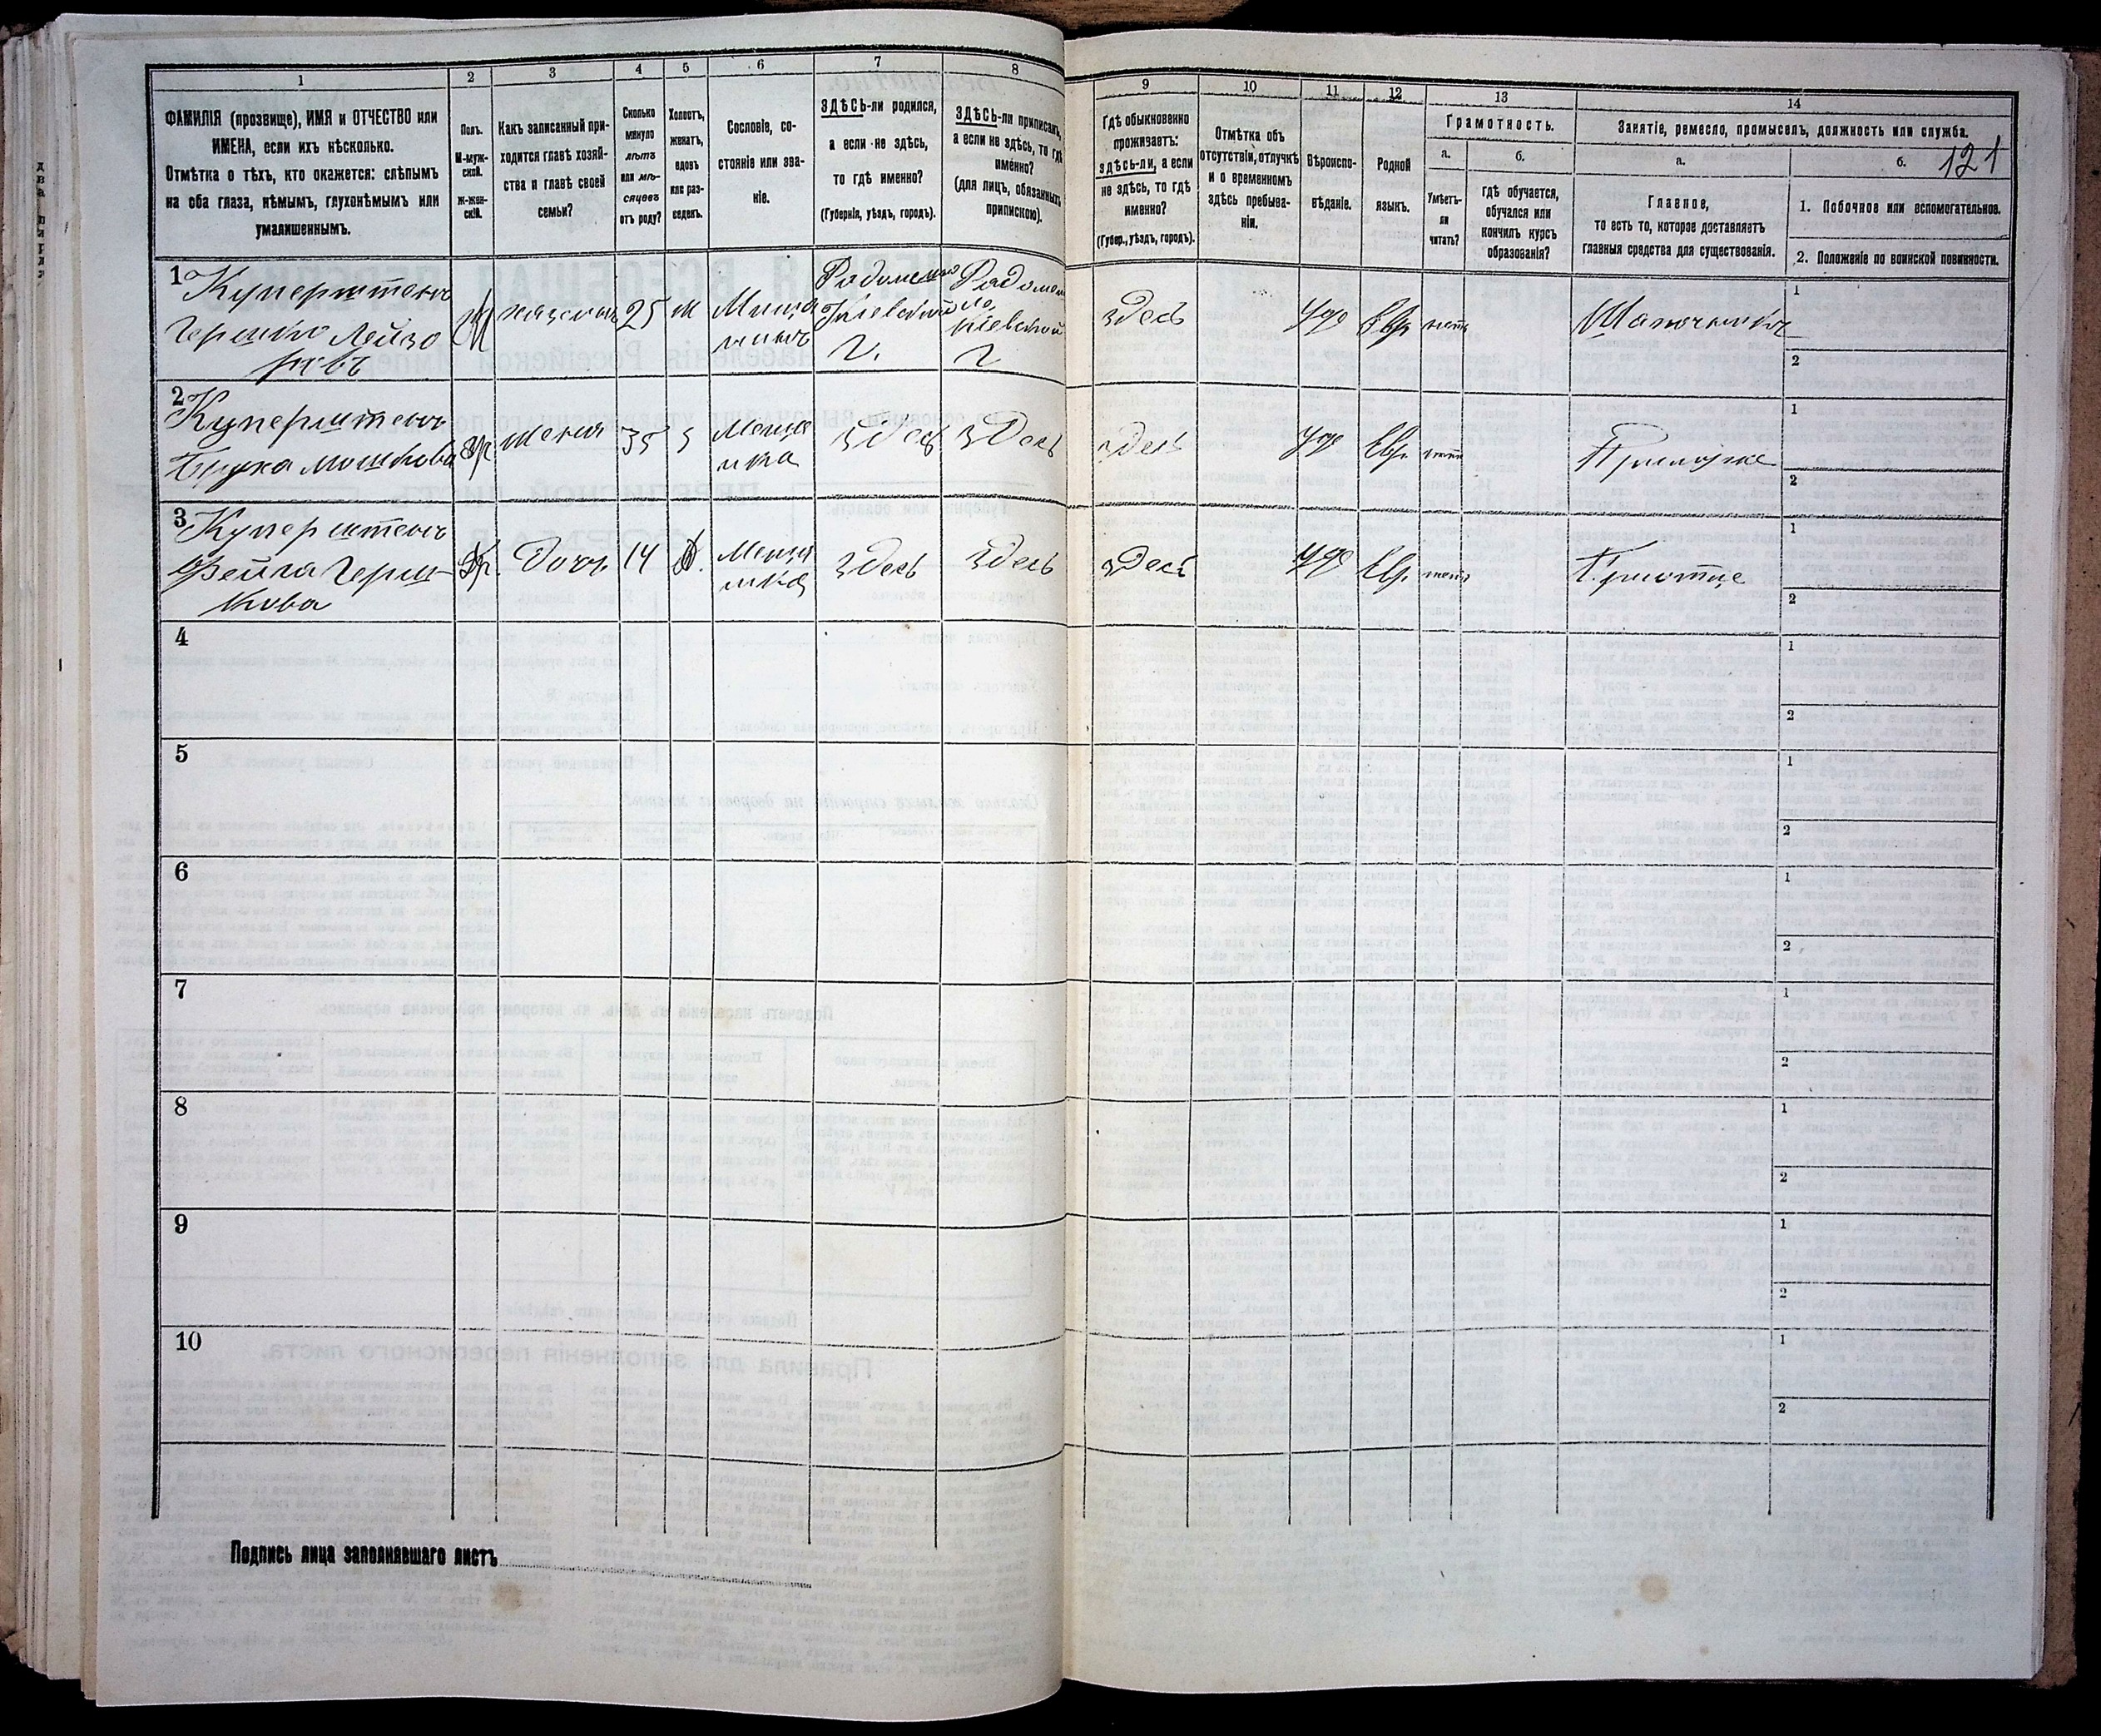 1
2
3
4
5
6
7
8
ФАМИЛІЯ (прозвище), ИМЯ и ОТЧЕСТВО или
ИМЕНА, если ихъ нѣсколько.
Отмѣтка о тѣхъ, кто окажется: слѣпымъ
на оба глаза, нѣмымъ, глухонѣмымъ или
умалишеннымъ.
Полъ.
М-муж-
ской.
Ж-жен-
скій.
Какъ записанный при-
ходится главѣ хозяй-
ства и главѣ своей
семьи?
Сколько
минуло
лѣтъ
или мѣ-
сяцевъ
отъ роду?
Холостъ,
женатъ,
вдовъ
или раз-
веденъ.
Сословіе, со-
стояніе или зва-
ніе.
ЗДѢСЬ-ли родился,
а если не здѣсь,
то гдѣ именно?
(Губернія, уѣздъ, городъ).
ЗДѢСЬ-ли приписанъ,
а если не здѣсь, то гдѣ
именно?
(для лицъ, обязанныхъ
припискою).
9
10
11
12
13
14
Гдѣ обыкновенно
проживаетъ:
здѣсь-ли, а если
не здѣсь, то гдѣ
именно?
(Губер., уѣздъ, городъ).
Отмѣтка объ
отсутствіи, отлучкѣ
и о временномъ
здѣсь пребыва-
ніи.
Вѣроиспо-
вѣданіе.
Родной
языкъ.
Грамотность.
а.
б.
Умѣетъ-
ли
читать?
Гдѣ обучается,
обучался или
кончилъ курсъ
образованія?
Занятіе, ремесло, промыселъ, должность или служба.
а.
б. 121
Главное,
то есть то, которое доставляетъ
главныя средства для существованія.
1. Побочное или вспомогательное.
2. Положеніе по воинской повинности.
1 Куперштенъ
Гершко Лейзо
ровъ
М
25
М
Мища
нинъ
Кіевской
Г.
Кіевской
Г
здесь
Іуде
Евр
нетъ
Шапочникъ
1
2
2 Куперштенъ
Мошкова
Ж
жена
35
З
Меща
нка
здесь
здесь
здесь
Іуде
Евр.
нетъ
При муже
1
2
3 Куперштенъ
Фейга Герш-
кова
Ж.
Дочь
14
Д.
Меща
нка
здесь
здесь
здесь
Іуде
Евр.
нетъ
При отце
1
2
4
1
2
5
1
2
6
1
2
7
1
2
8
1
2
9
1
2
10
1
2
Подпись лица заполнявшаго листъ